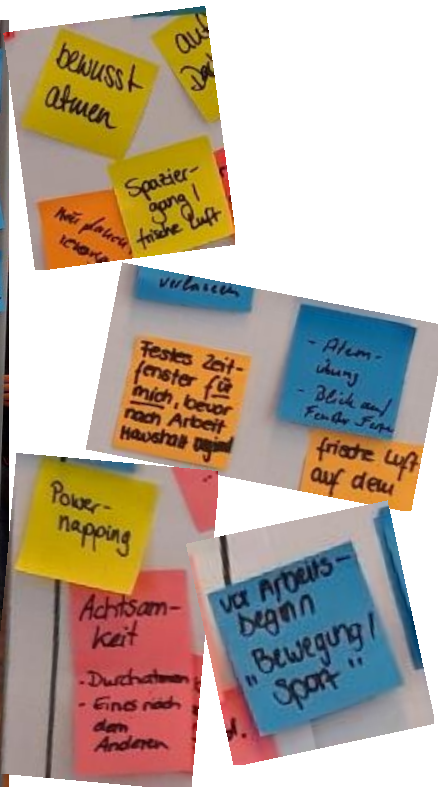 bewusst
atmen
auf
Spazier-
gang /
frische Luft
verlassen
Festes Zeit-
fenster für
mich, bevor
nach Arbeit
Haushalt beginnt
- Atem-
übung
- Blick auf
Fenster
frische Luft
auf dem
Power-
napping
Achtsam-
keit
- Durchatmen
- Eines nach
dem
Anderen
vor Arbeits-
beginn
"Bewegung /
Sport"